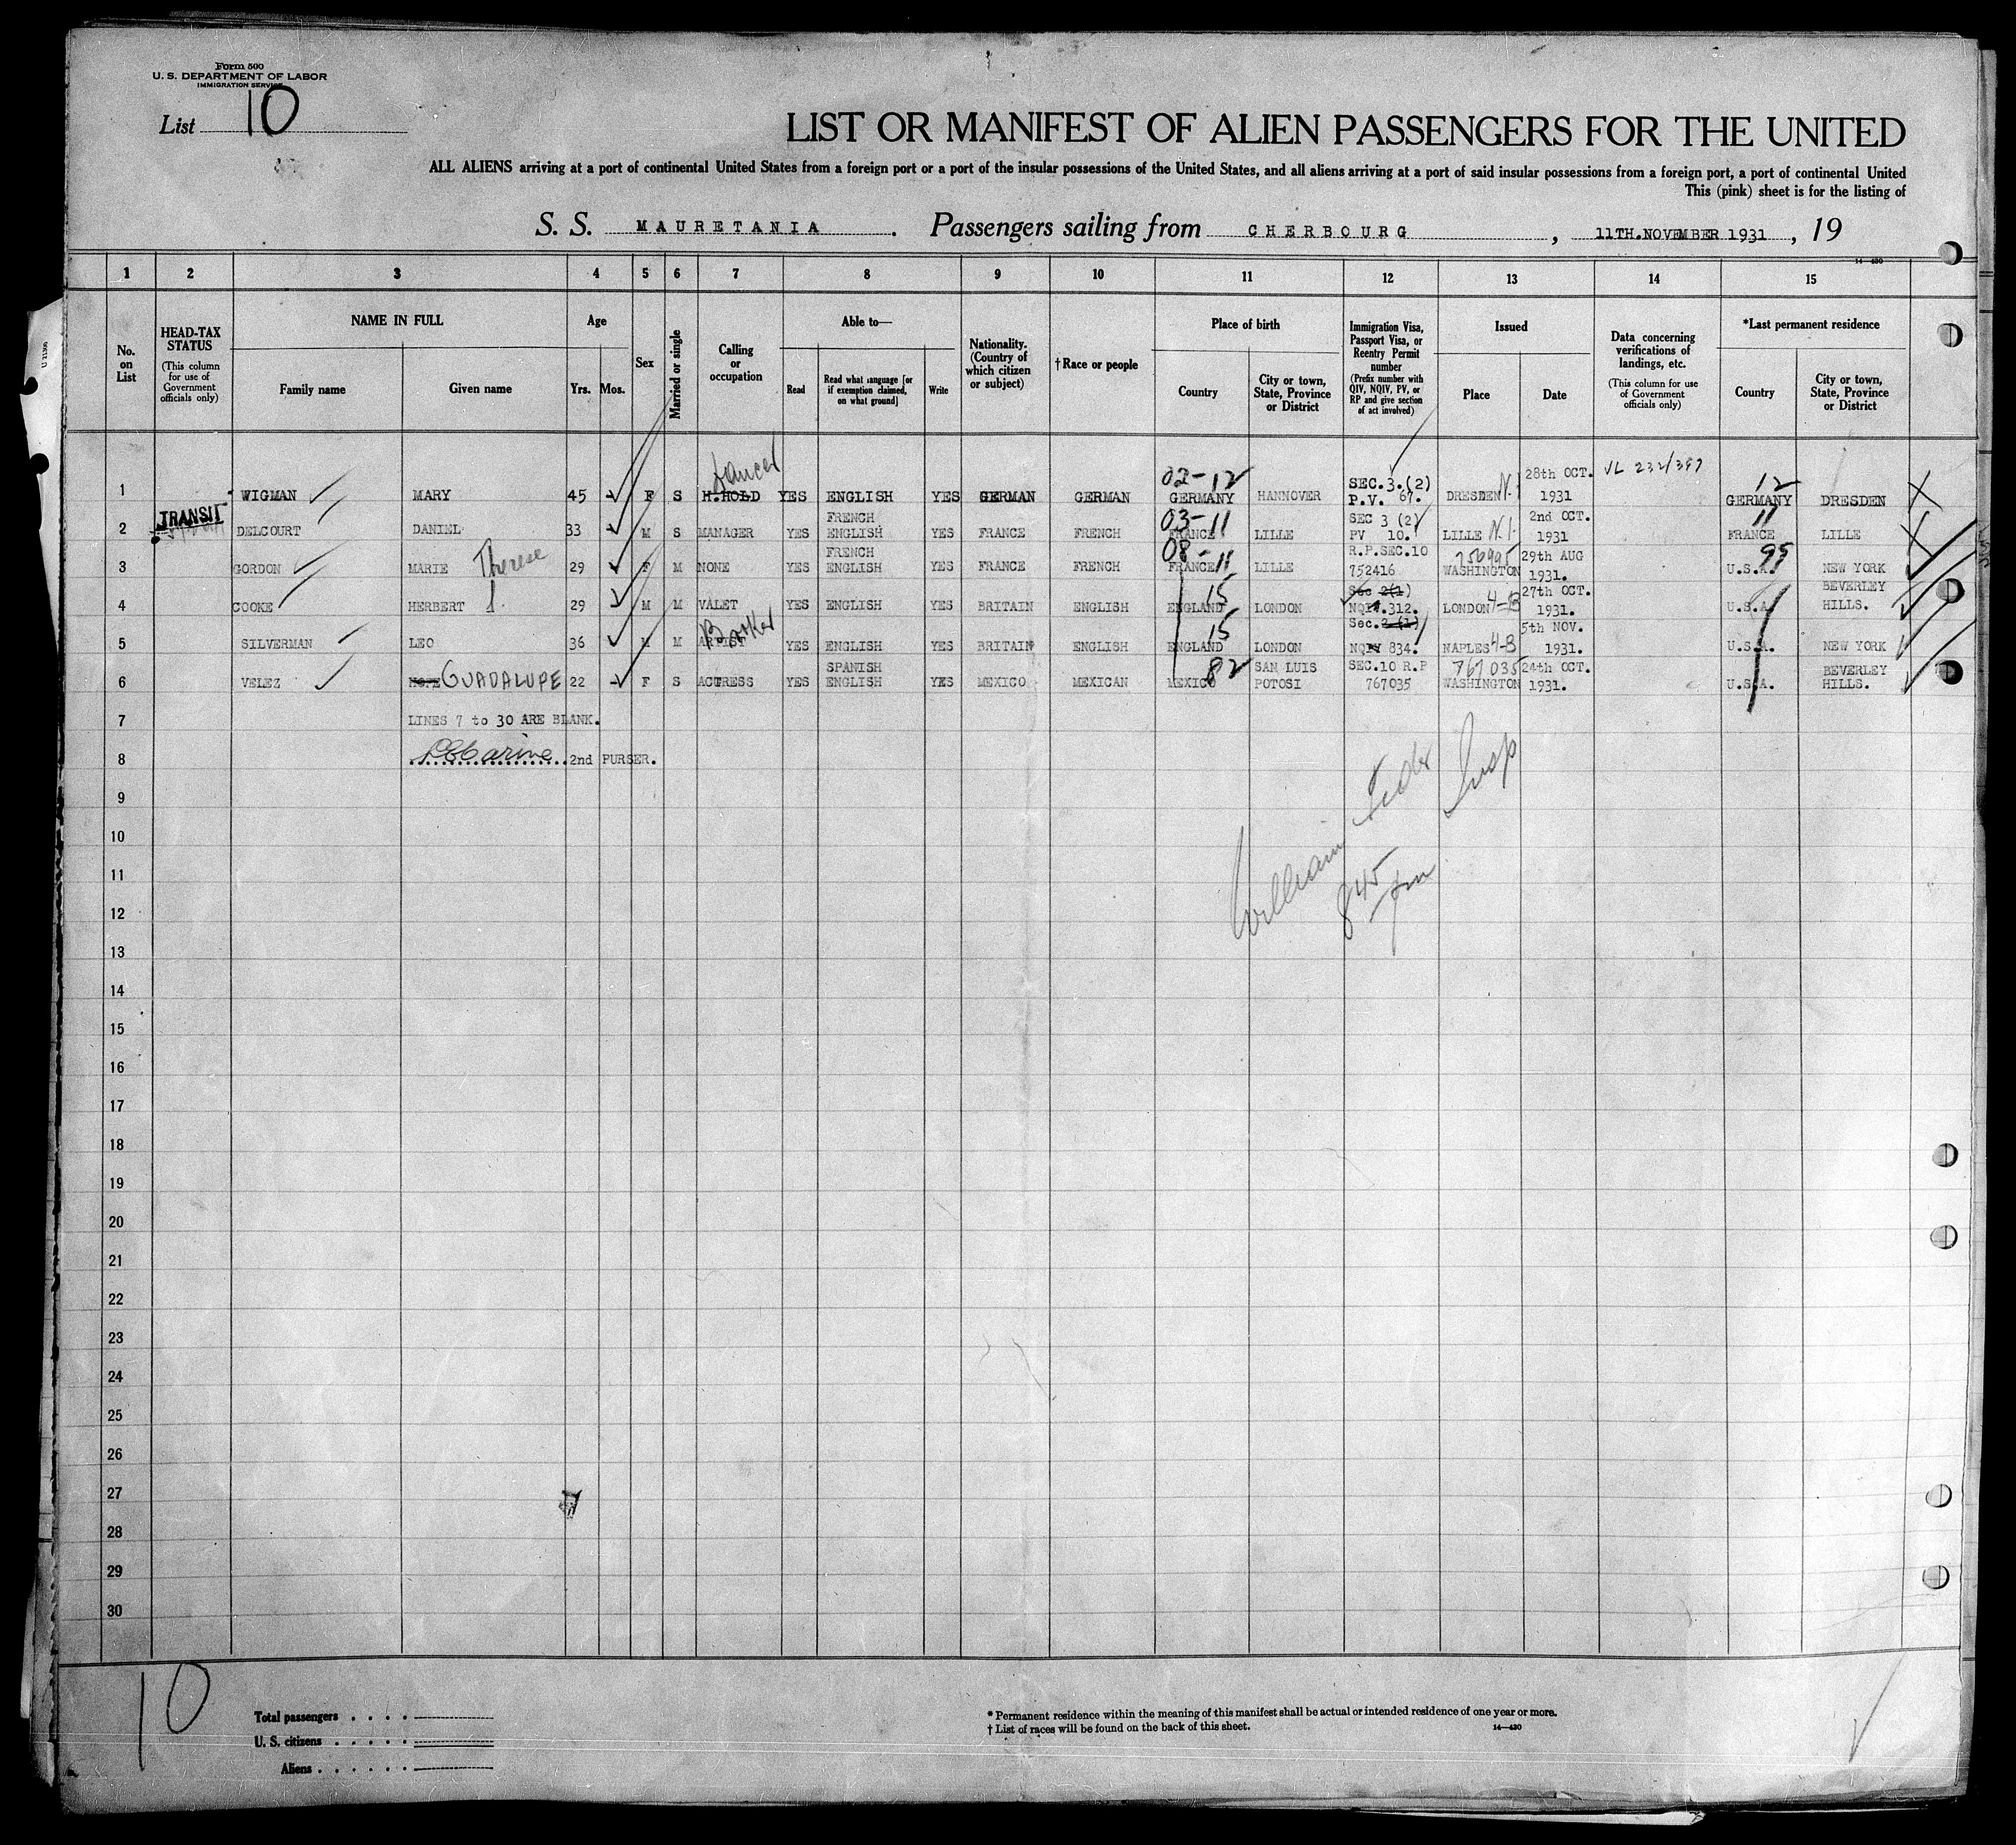 Form 500
U. S. DEPARTMENT OF LABOR
IMMIGRATION SERVICE
List 10
LIST OR MANIFEST OF ALIEN PASSENGERS FOR THE UNITED
ALL ALIENS arriving at a port of continental United States from a foreign port or a port of the insular possessions of the United States, and all aliens arriving at a port of said insular possessions from a foreign port, a port of continental United
This (pink) sheet is for the listing of
S. S. MAURETANIA . Passengers sailing from CHERBOURG , 11TH.NOVEMBER 1931 , 19
14—430
1 2 3 4 5 6 7 8 9 10 11 12 13 14 15
No. on List
HEAD-TAX STATUS
(This column for use of Government officials only)
NAME IN FULL
Family name
Given name
Age
Yrs.
Mos.
Sex
Married or single
Calling or occupation
Able to—
Read
Read what language [or if exemption claimed, on what ground]
Write
Nationality. (Country of which citizen or subject)
† Race or people
Place of birth
Country
City or town, State, Province or District
Immigration Visa, Passport Visa, or Reentry Permit number
(Prefix number with QIV, NQIV, PV, or RP and give section of act involved)
Issued
Place
Date
Data concerning verifications of landings, etc.
(This column for use of Government officials only)
*Last permanent residence
Country
City or town, State, Province or District
Dancer 02-12 SEC.3.(2) 28th OCT. VL 232/397 12
1 WIGMAN MARY 45 F S H.HOLD YES ENGLISH YES GERMAN GERMAN GERMANY HANNOVER P.V. 67. DRESDEN N.I 1931 GERMANY DRESDEN
TRANSIT FRENCH 03-11 SEC 3 (2) 2nd OCT. 11
2 DELCOURT DANIEL 33 M S MANAGER YES ENGLISH YES FRANCE FRENCH FRANCE LILLE PV 10. LILLE N.I. 1931 FRANCE LILLE
Therese FRENCH 08-11 R.P.SEC.10 756995 29th AUG 95
3 GORDON MARIE 29 F M NONE YES ENGLISH YES FRANCE FRENCH FRANCE LILLE 752416 WASHINGTON 1931. U.S.A. NEW YORK
15 Sec 2(1) 27th OCT. BEVERLEY
4 COOKE HERBERT 29 M M VALET YES ENGLISH YES BRITAIN ENGLISH ENGLAND LONDON NQIV.312. LONDON 4-B 1931. U.S.A HILLS.
15 Sec.2 (1) 5th NOV.
5 SILVERMAN LEO 36 M M ARTIST YES ENGLISH YES BRITAIN ENGLISH ENGLAND LONDON NQIV 834. NAPLES 4-B 1931. U.S.A. NEW YORK
SPANISH 82 SAN LUIS SEC.10 R.P 767035 24th OCT. BEVERLEY
6 VELEZ GUADALUPE 22 F S ACTRESS YES ENGLISH YES MEXICO MEXICAN MEXICO POTOSI 767035 WASHINGTON 1931. U.S.A. HILLS.
7 LINES 7 to 30 ARE BLANK.
8 2nd PURSER.
9
10
11
William Insp
8 45 pm
12
13
14
15
16
17
18
19
20
21
22
23
24
25
26
27
28
29
30
10
Total passengers
U. S. citizens
Aliens
* Permanent residence within the meaning of this manifest shall be actual or intended residence of one year or more.
† List of races will be found on the back of this sheet.
14—430